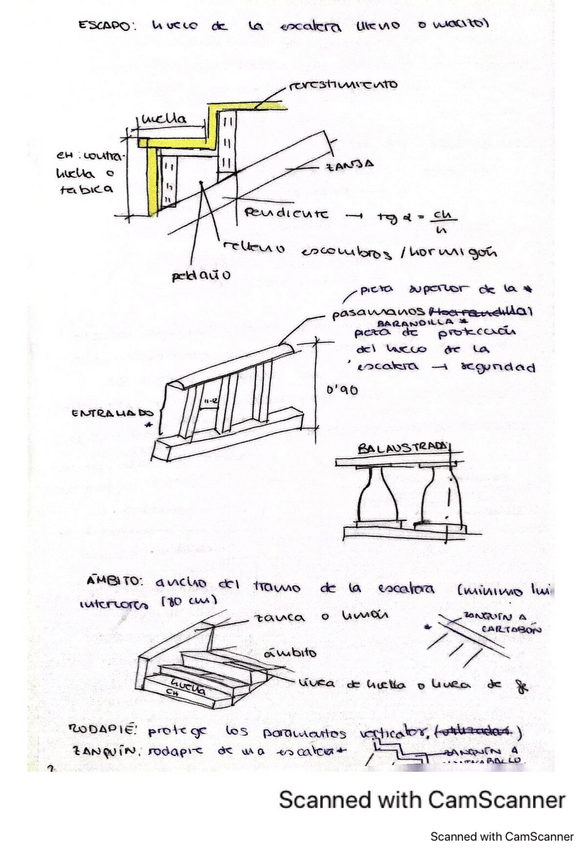 ESCAPO: hueco de la escalera (lleno o macizo)
revestimiento
huella
CH: contra-
huella o
tabica
ZANJA
Pendiente → tg α = ch/h
relleno escombros / hormigón
peldaño
pieza superior de la *
pasamanos
BARANDILLA *
pieza de protección
del hueco de la
escalera → seguridad
0'90
ENTRAMADO
*
BALAUSTRADA
ÁMBITO: ancho del tramo de la escalera (mínimo
interiores (80 cm)
zanca o limón
ZANQUÍN A
* CARTABÓN
ámbito
huella
CH
línea de huella o línea de
RODAPIÉ: protege los paramentos verticales.
ZANQUÍN: rodapie de una escalera *
ZANQUÍN A
Scanned with CamScanner
Scanned with CamScanner